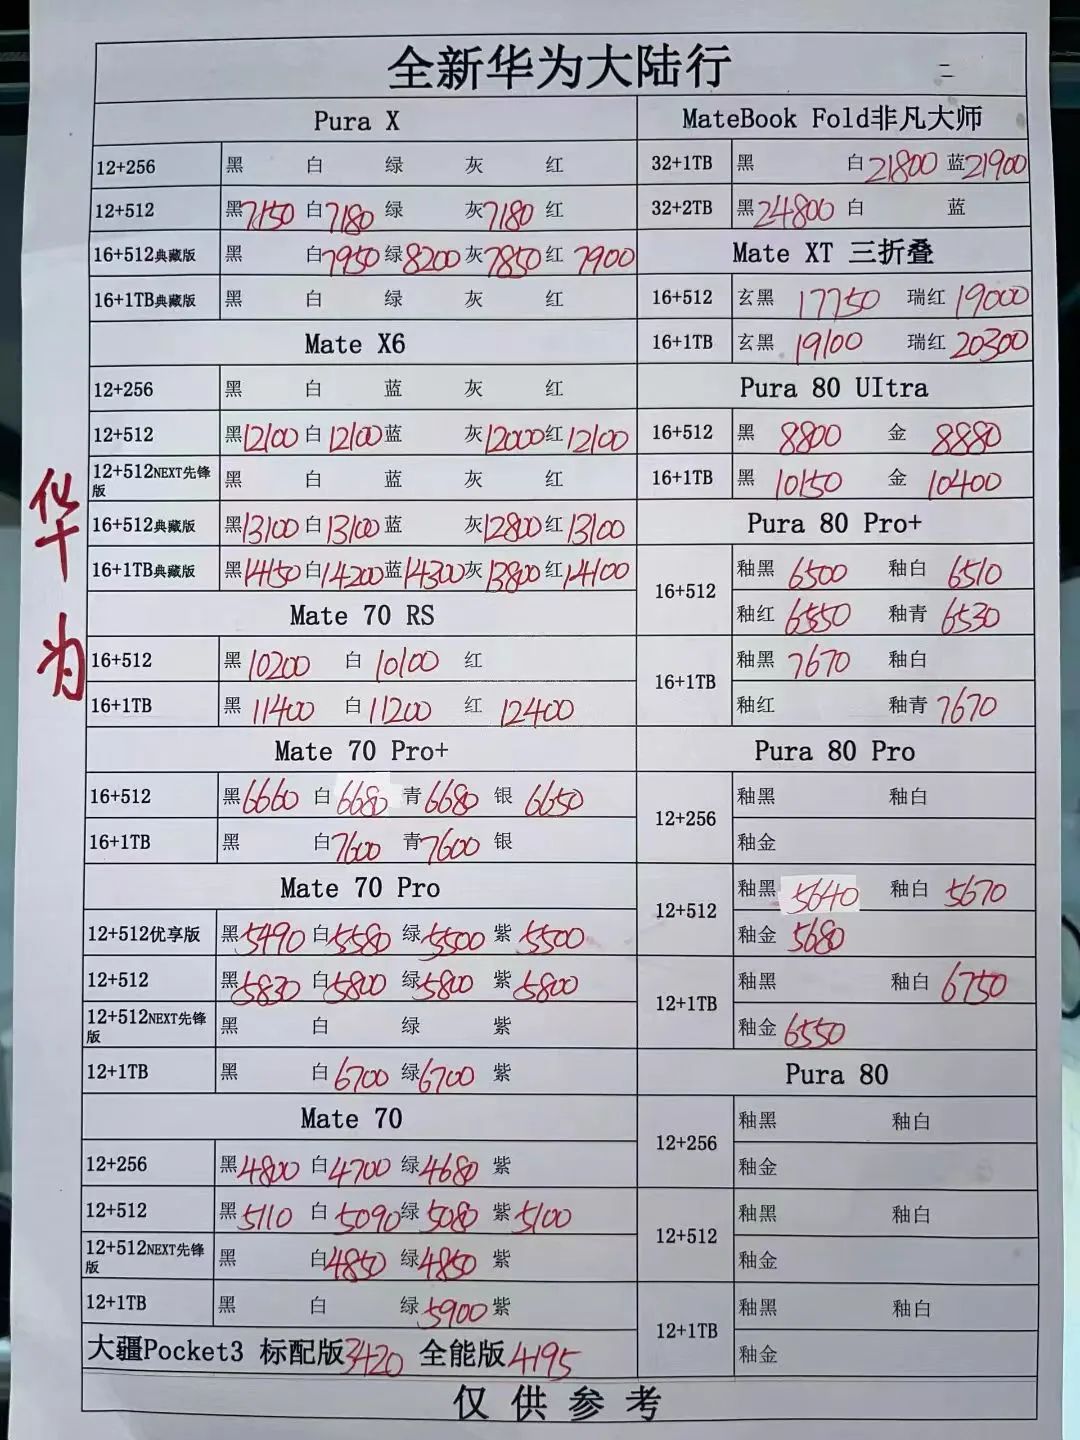 全新华为大陆行 二
Pura X
12+256 黑 白 绿 灰 红
12+512 黑7150 白7180 绿 灰7180 红
16+512典藏版 黑 白7950 绿8200 灰7850 红7900
16+1TB典藏版 黑 白 绿 灰 红
Mate X6
12+256 黑 白 蓝 灰 红
12+512 黑12100 白12100 蓝 灰12000 红12100
12+512NEXT先锋版 黑 白 蓝 灰 红
16+512典藏版 黑13100 白13100 蓝 灰12800 红13100
16+1TB典藏版 黑14150 白14200 蓝14300 灰13800 红14100
Mate 70 RS
16+512 黑10200 白10100 红
16+1TB 黑11400 白11200 红12400
Mate 70 Pro+
16+512 黑6660 白6680 青6680 银6650
16+1TB 黑 白7600 青7600 银
Mate 70 Pro
12+512优享版 黑5490 白5580 绿5500 紫5500
12+512 黑5830 白5800 绿5800 紫5800
12+512NEXT先锋版 黑 白 绿 紫
12+1TB 黑 白6700 绿6700 紫
Mate 70
12+256 黑4800 白4700 绿4680 紫
12+512 黑5110 白5090 绿5080 紫5100
12+512NEXT先锋版 黑 白4850 绿4850 紫
12+1TB 黑 白 绿5900 紫
大疆Pocket3 标配版3420 全能版4195
MateBook Fold非凡大师
32+1TB 黑 白21800 蓝21900
32+2TB 黑24800 白 蓝
Mate XT 三折叠
16+512 玄黑 17750 瑞红19000
16+1TB 玄黑 19100 瑞红20300
Pura 80 UItra
16+512 黑 8800 金 8880
16+1TB 黑 10150 金 10400
Pura 80 Pro+
16+512 釉黑 6500 釉白 6510
釉红 6550 釉青 6530
16+1TB 釉黑 7670 釉白
釉红 釉青 7670
Pura 80 Pro
12+256 釉黑 釉白
釉金
12+512 釉黑 5640 釉白 5670
釉金 5680
12+1TB 釉黑 釉白 6750
釉金 6550
Pura 80
12+256 釉黑 釉白
釉金
12+512 釉黑 釉白
釉金
12+1TB 釉黑 釉白
釉金
仅供参考
华为